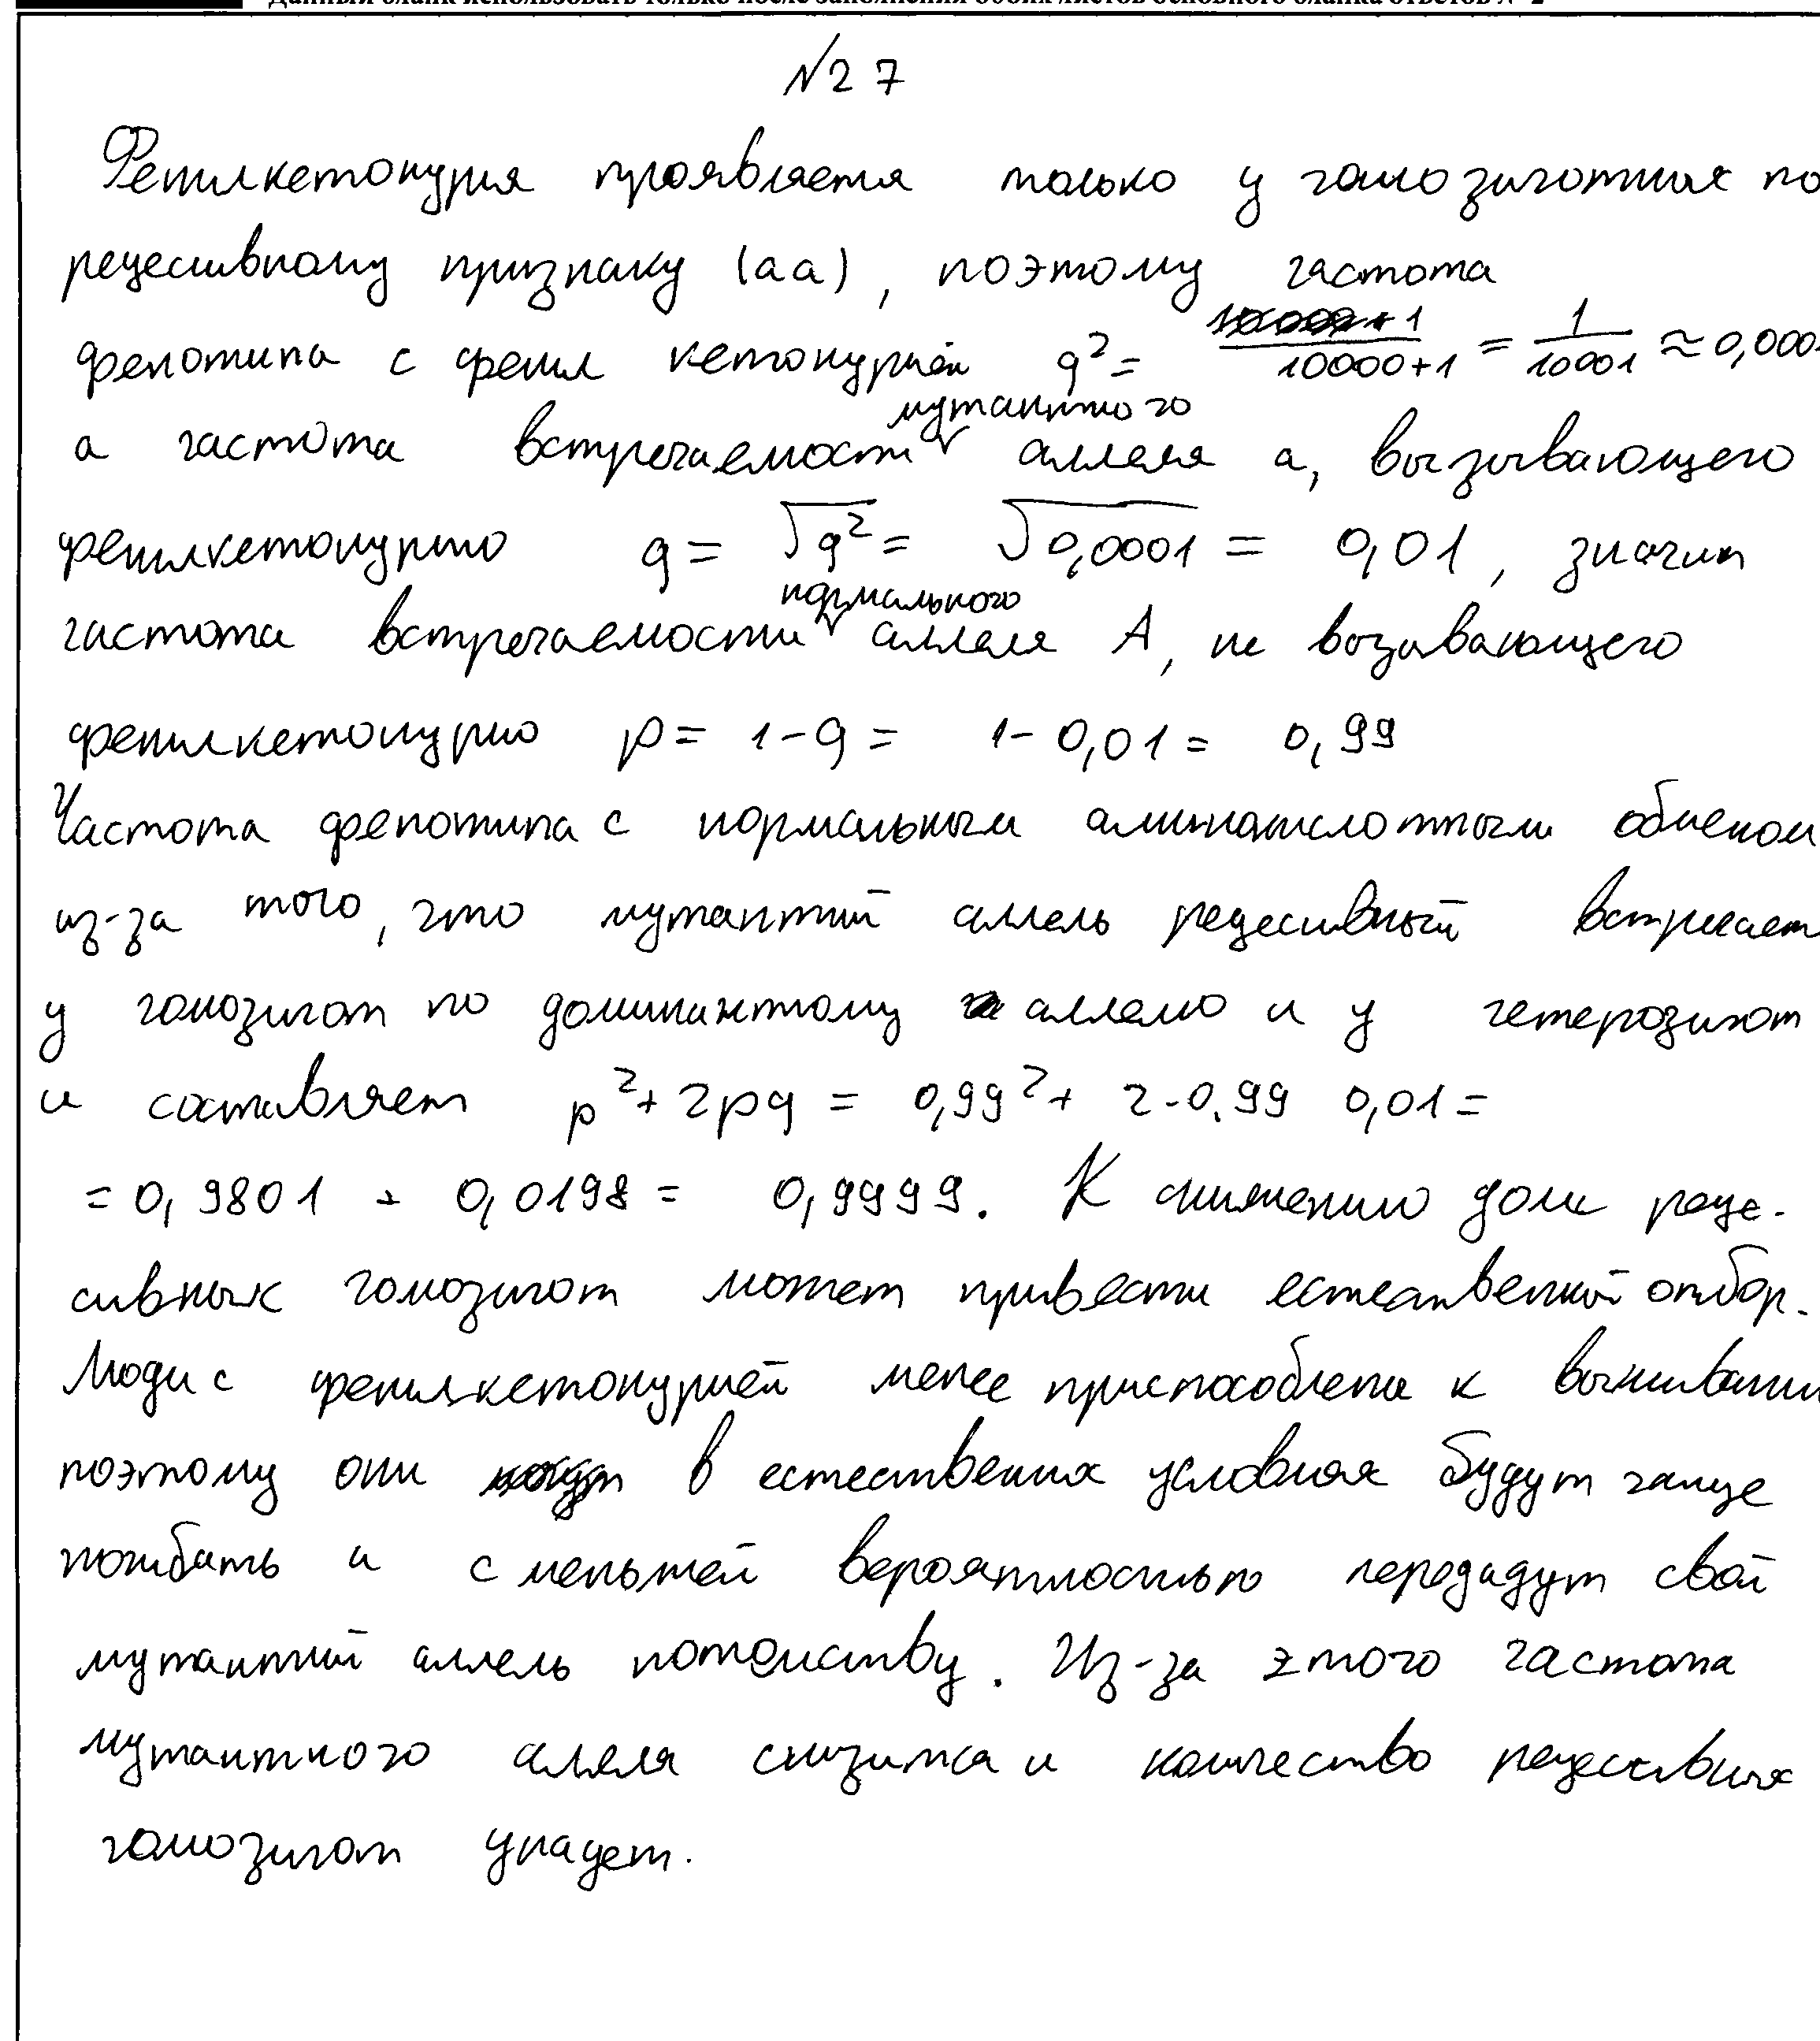 Данный бланк использовать только после заполнения обоих листов основного бланка ответов № 2
№27
Фенилкетонурия проявляется только у гомозиготных по
рецесивному признаку (аа), поэтому частота
фенотипа с фенил кетонурией q² = 1/(10000+1) = 1/10001 ≈ 0,000
мутантного
а частота встречаемости аллеля а, вызывающего
фенилкетонурию q = √q² = √0,0001 = 0,01, значит
нормального
частота встречаемости аллеля А, не вызывающего
фенилкетонурию p = 1-q = 1-0,01 = 0,99
Частота фенотипа с нормальным аминокислотным обменом
из-за того, что мутантный аллель рецесивный встречает
у гомозигот по доминантному аллелю и у гетерозигот
и составляет p² + 2pq = 0,99² + 2·0,99 0,01 =
= 0,9801 + 0,0198 = 0,9999. К снижению доли реце-
сивных гомозигот может привести естественный отбор.
Люди с фенилкетонурией менее приспособлены к выживани
поэтому они в естественных условиях будут чаще
погибать и с меньшей вероятностью передадут свой
мутантный аллель потомству. Из-за этого частота
мутантного аллеля снизится и количество рецессивных
гомозигот упадет.